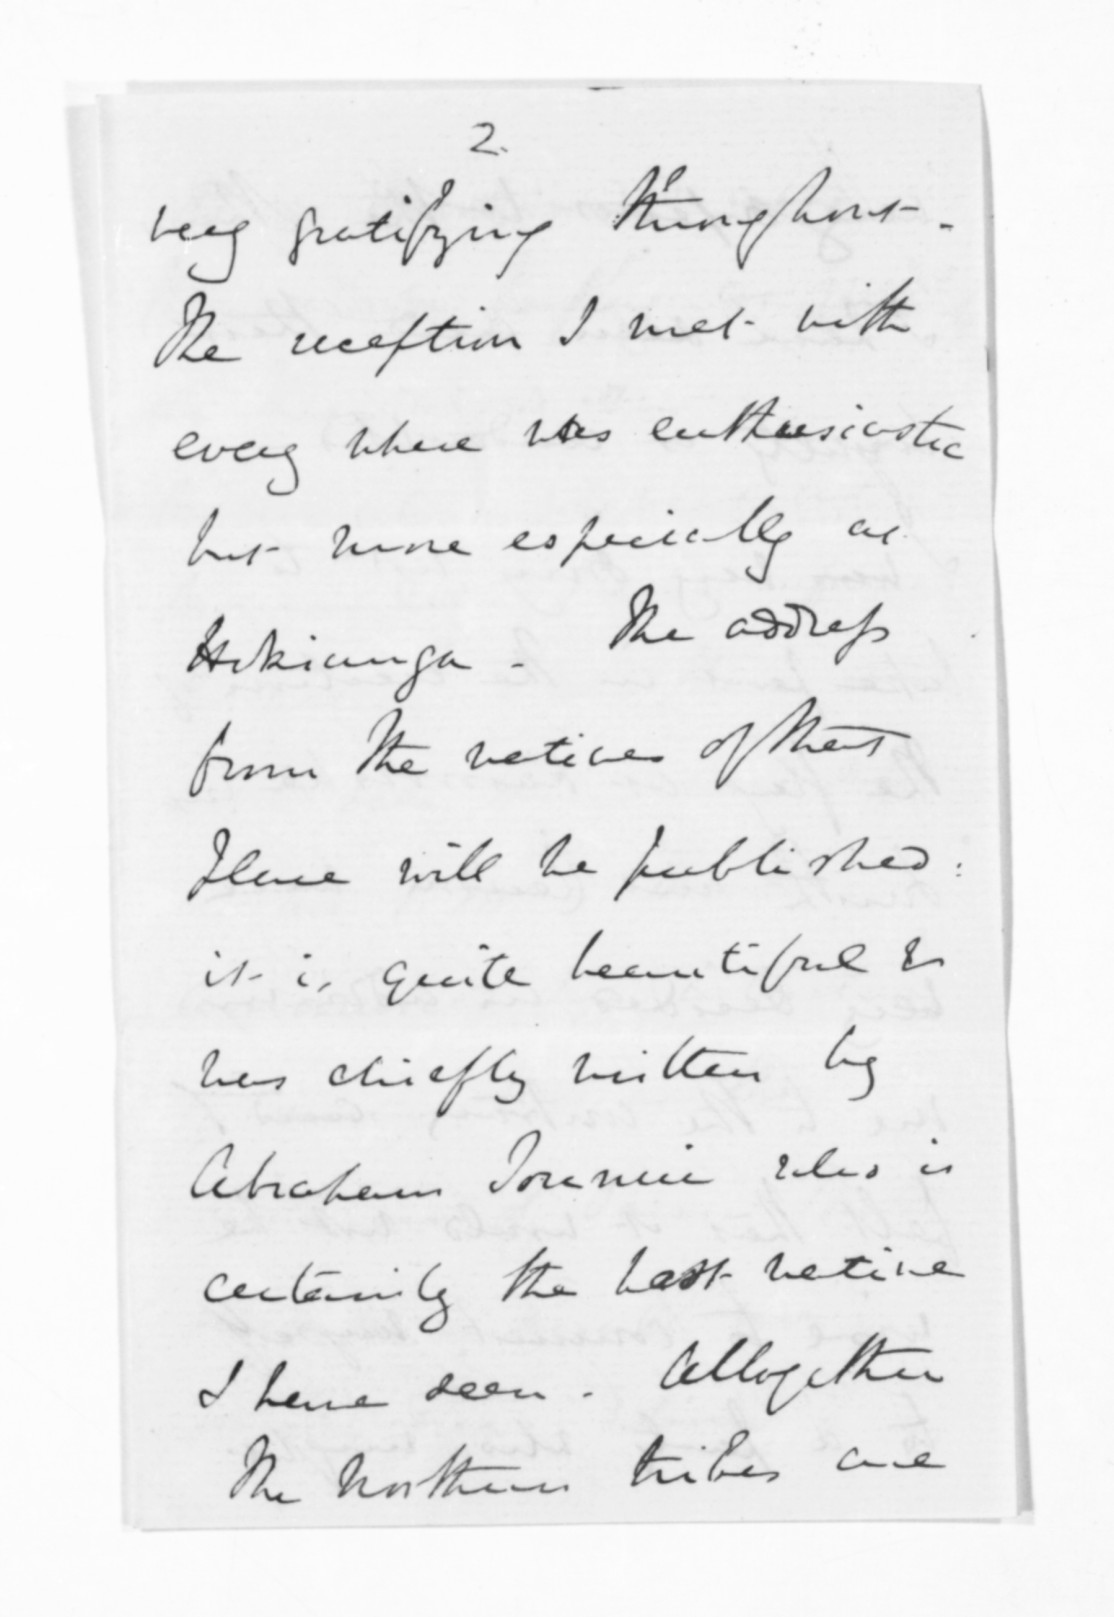 2.
very gratifying throughout -
The reception I met with
every where was enthusiastic
but more especially at
Hokianga - The address
from the natives of that
Place will be published:
it is quite beautiful &
was chiefly written by
Abraham who is
certainly the best native
I have seen. Altogether
The Northern tribes are